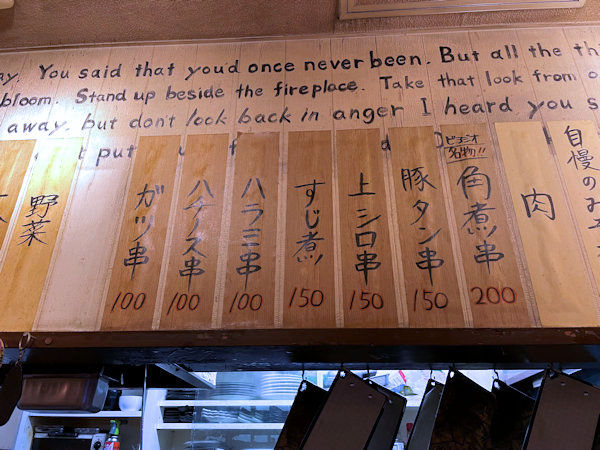 ay. You said that you'd once never been. But all the thi
bloom. Stand up beside the fireplace. Take that look from o
away, but don't look back in anger I heard you s
put
野菜
ガツ串
100
ハチノス串
100
ハラミ串
100
すじ煮
150
上シロ串
150
豚タン串
150
名物!!
角煮串
200
肉
自慢のみ